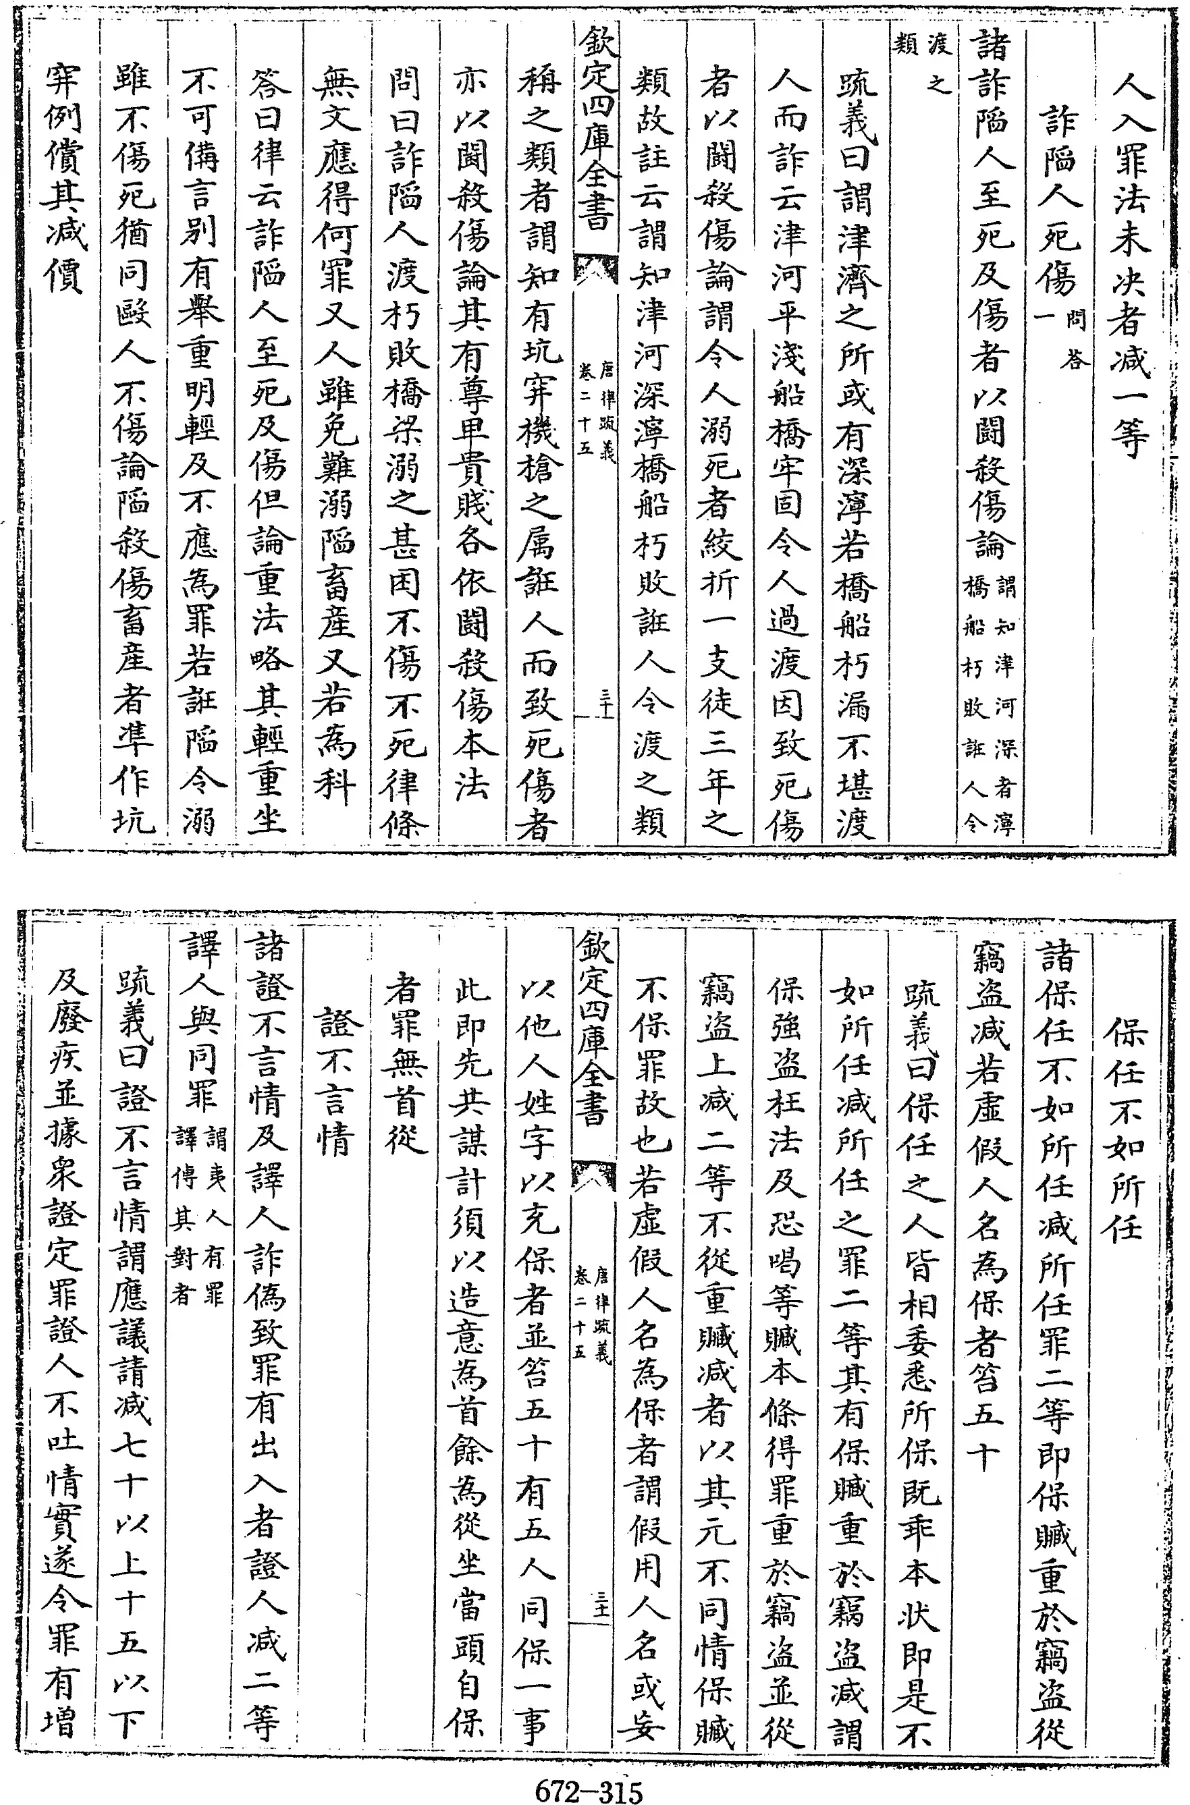 人入罪法未決者減一等
詐陷人死傷 問答一
諸詐陷人至死及傷者以鬬殺傷論 謂知津河深者濘橋船朽敗誑人令
渡之類
疏義曰謂津濟之所或有深濘若橋船朽漏不堪渡
人而詐云津河平淺船橋牢固令人過渡因致死傷
者以鬬殺傷論謂令人溺死者絞折一支徒三年之
類故註云謂知津河深濘橋船朽敗誑人令渡之類
欽定四庫全書 唐律疏義卷二十五 三十一
稱之類者謂知有坑穽機槍之属誑人而致死傷者
亦以鬬殺傷論其有尊卑貴賤各依鬬殺傷本法
問曰詐陷人渡朽敗橋梁溺之甚困不傷不死律條
無文應得何罪又人雖免難溺陷畜産又若為科
答曰律云詐陷人至死及傷但論重法略其輕重坐
不可備言别有舉重明輕及不應為罪若誑陷令溺
雖不傷死猶同毆人不傷論陷殺傷畜産者準作坑
穽例償其減價
保任不如所任
諸保任不如所任減所任罪二等即保贓重於竊盗從
竊盗減若虛假人名為保者笞五十
疏義曰保任之人皆相委悉所保既乖本状即是不
如所任減所任之罪二等其有保贓重於竊盗減謂
保強盗枉法及恐喝等贓本條得罪重於竊盗並從
竊盗上減二等不從重贓減者以其元不同情保贓
不保罪故也若虛假人名為保者謂假用人名或妄
欽定四庫全書 唐律疏義卷二十五 三十二
以他人姓字以充保者並笞五十有五人同保一事
此即先共謀計須以造意為首餘為從坐當頭自保
者罪無首從
證不言情
諸證不言情及譯人詐偽致罪有出入者證人減二等
譯人與同罪 謂夷人有罪譯傳其對者
疏義曰證不言情謂應議請減七十以上十五以下
及廢疾並據衆證定罪證人不吐情實遂令罪有增
672-315